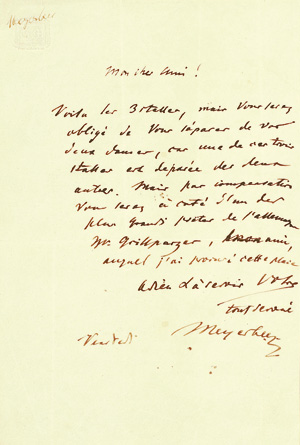 Meyerbeer
Mon cher ami!
Voila les 3 stalles, mais vous serez
obligé de vous séparer de vos
deux dames, car une de ces trois
stalles est séparée des deux
autres. Mais par compensation
vous serez à coté d'un des
plus grands poetes de l'allemagne
Mr. Grillparzer,
auquel j'ai donné cette place
Adieu Votre
tout dévoué
Vendredi
Meyerbeer